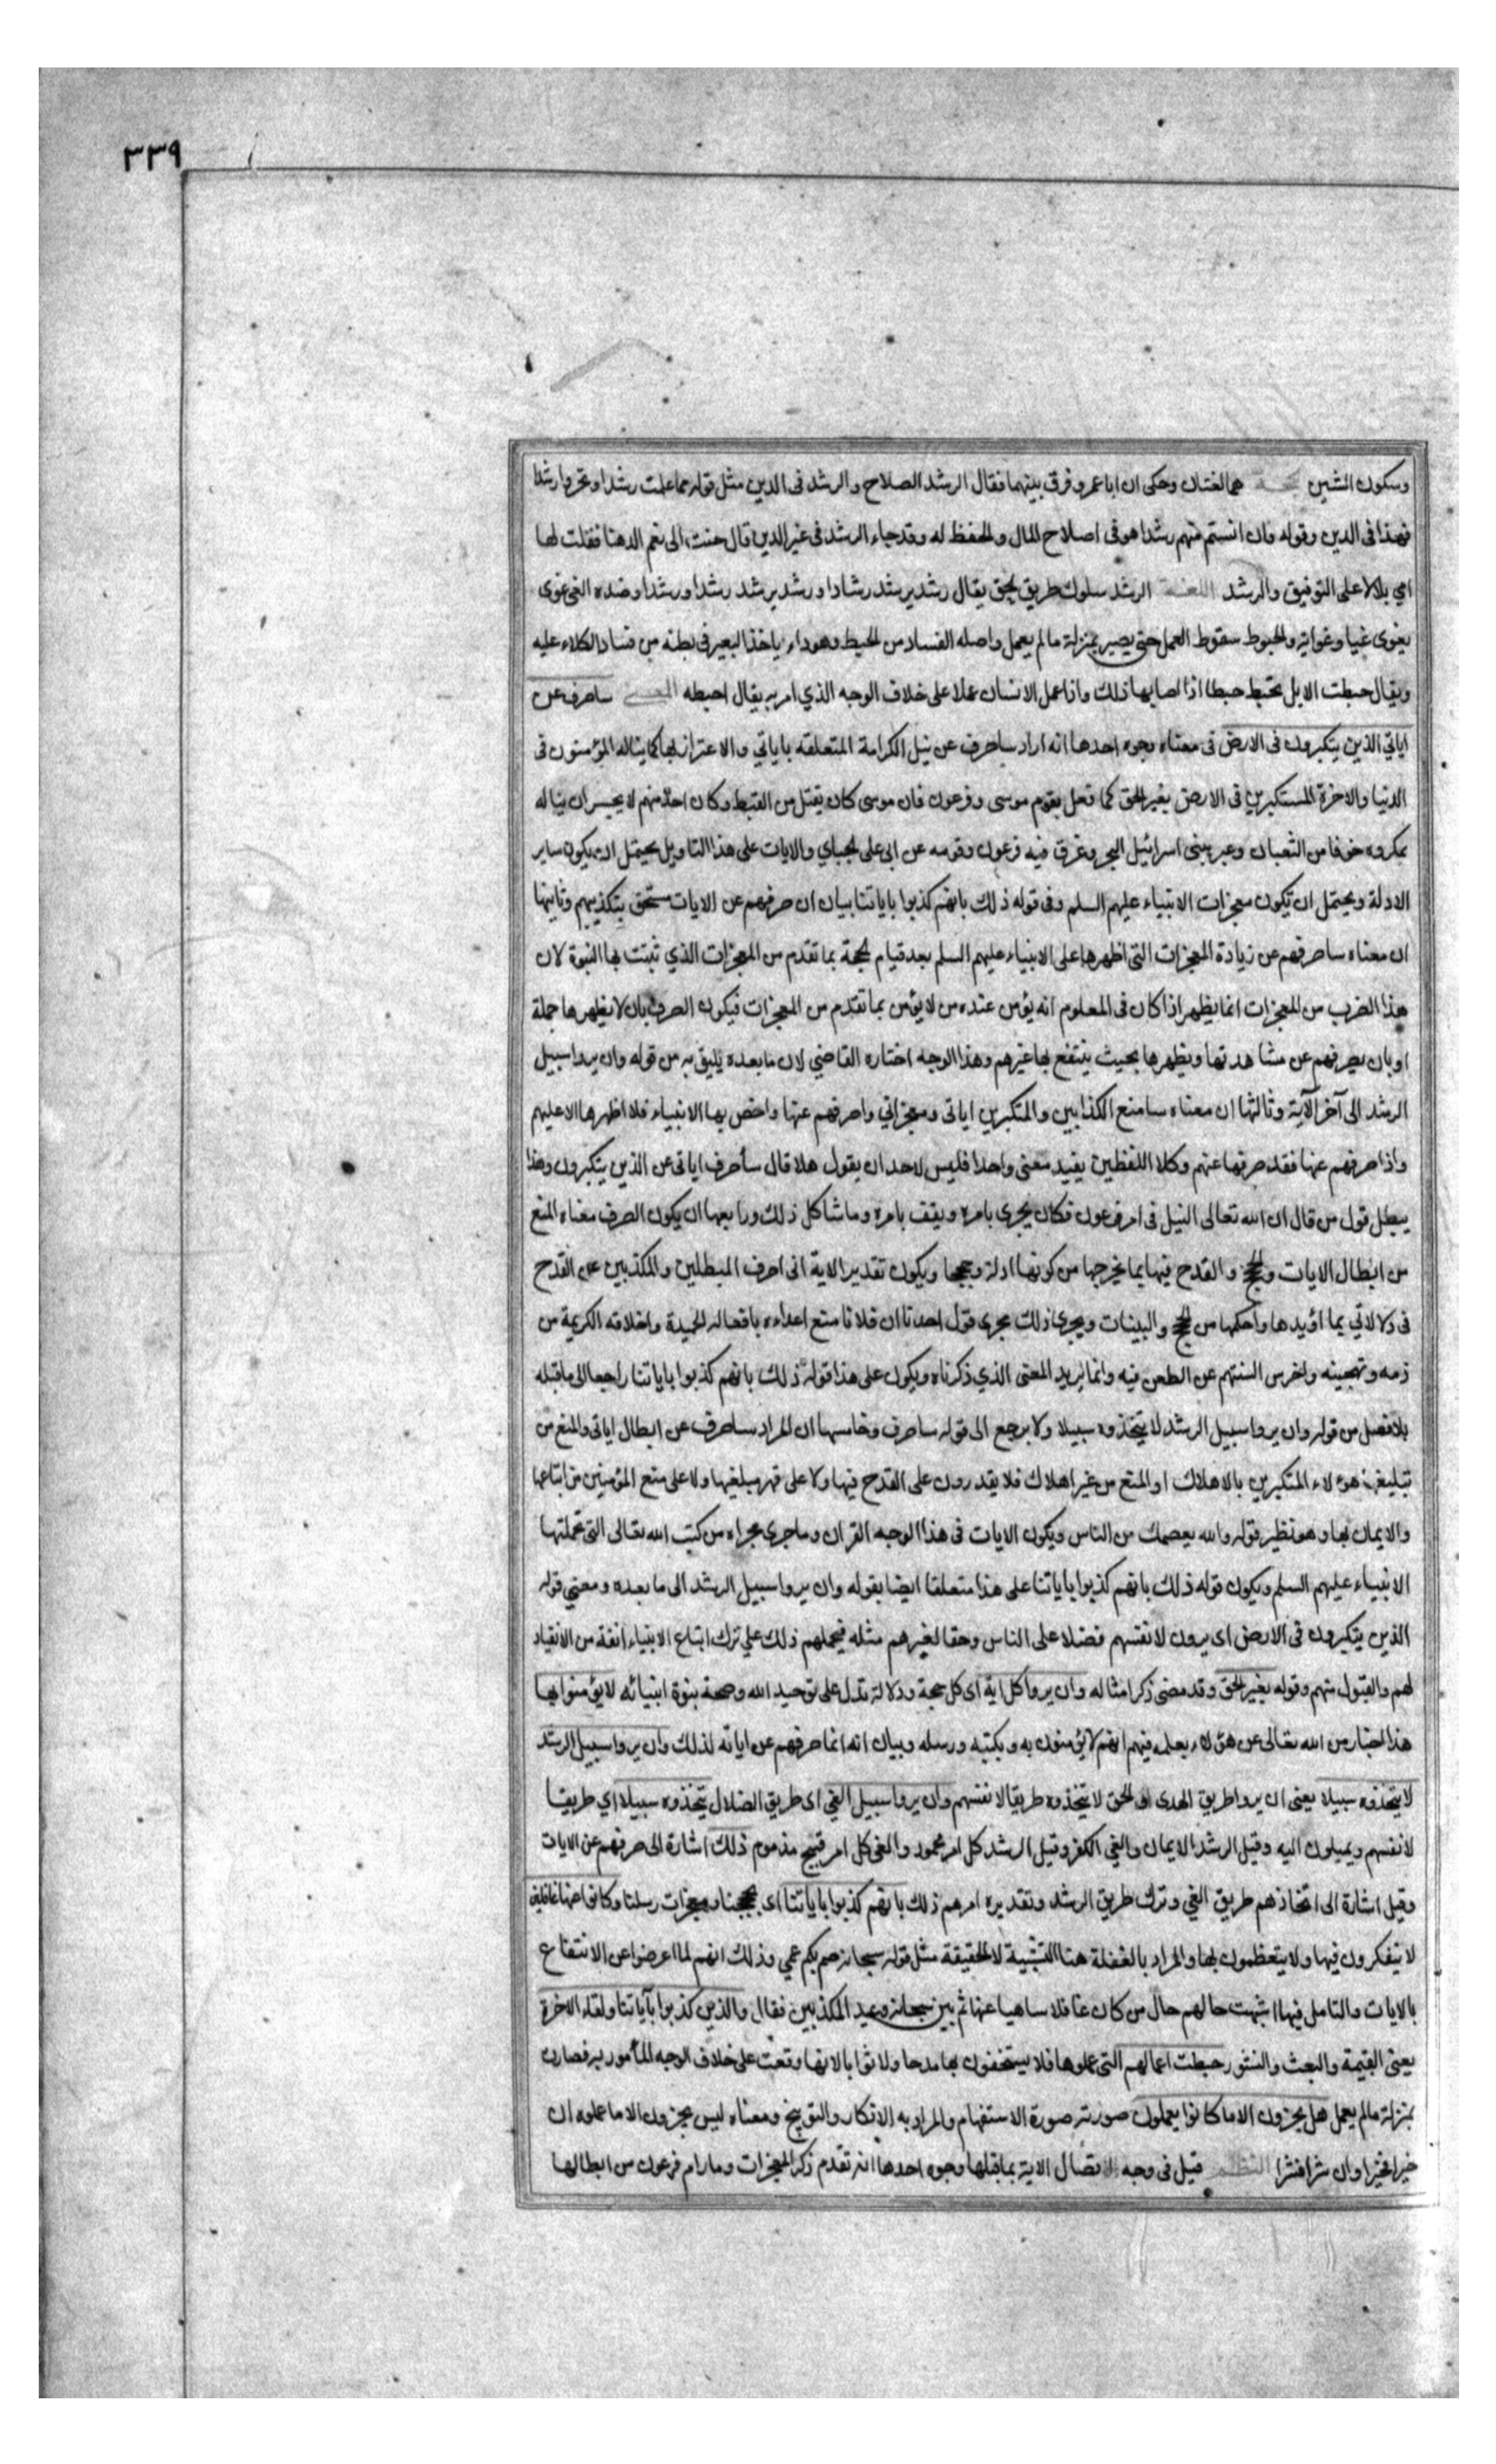 ٣٣٩
وسكون الشين الحجة هما لغتان وحكى ان ابا عمرو فرق بينهما فقال الرشد الصلاح والرشد فى الدين مثل قوله مما علمت رشدا وتحروا رشدا
فهذا فى الدين وقوله فان انستم منهم رشدا هو فى اصلاح المال والحفظ له وقد جاء الرشد فى غير الدين قال حنت الى نعم الدهنا فقلت لها
امي بلالا على التوفيق والرشد اللغة الرشد سلوك طريق الحق يقال رشد يرشد رشادا ورشد يرشد رشدا ورشدا وضده الغى غوى
يغوى غيا وغواية والحبوط سقوط العمل حتى يصير بمنزلة ما لم يعمل واصله الفساد من الحبط وهو داء ياخذ البعير فى بطنه من فساد الكلاء عليه
ويقال حبطت الابل تحبط حبطا اذا اصابها ذلك واذا عمل الانسان عملا على خلاف الوجه الذي امر به يقال احبطه المعنى ساصرف عن
اياتي الذين يتكبرون فى الارض فى معناه وجوه احدها انه اراد ساصرف عن نيل الكرامة المتعلقه باياتي والاعتزاز بها كما يناله المؤمنون فى
الدنيا والاخرة المستكبرين فى الارض بغير الحق كما فعل بقوم موسى وفرعون فان موسى كان يقتل من القبط وكان احد منهم لا يجسر ان يناله
بمكروه خوفا من الثعبان وعبر ببنى اسرائيل البحر وغرق فيه فرعون وقومه عن ابى على الجباي والايات على هذا التاويل يحتمل ان يكون ساير
الادلة ويحتمل ان تكون معجزات الانبياء عليهم السلم وفى قوله ذلك بانهم كذبوا باياتنا بيان ان صرفهم عن الايات مستحق بتكذيبهم وثانيها
ان معناه ساصرفهم عن زيادة المعجزات التى اظهرها على الانبياء عليهم السلم بعد قيام الحجة بما تقدم من المعجزات الذي ثبتت بها النبوة لان
هذا الضرب من المعجزات انما يظهر اذا كان فى المعلوم انه يؤمن عنده من لا يؤمن بما تقدم من المعجزات فيكون الصرف بان لا يظهرها جملة
او بان يصرفهم عن مشاهدتها ويظهرها بحيث ينتفع بها غيرهم وهذا الوجه اختاره القاضي لان ما بعده يليق به من قوله وان يروا سبيل
الرشد الى آخر الآية وثالثها ان معناه سامنع الكذابين والمتكبرين اياتى ومعجزاتي واصرفهم عنها واخص بها الانبياء فلا اظهرها الا عليهم
واذا صرفهم عنها فقد صرفها عنهم وكلا اللفظين يفيد معنى واحدا فليس لاحد ان يقول هلا قال سأصرف اياتى عن الذين يتكبرون وهذا
يبطل قول من قال ان الله تعالى النيل فى امر فرعون فكان يجرى بامره ويقف بامره وما شاكل ذلك ورابعها ان يكون الصرف معناه المنع
من ابطال الايات والحجج والقدح فيها بما يخرجها من كونها ادلة وحججا ويكون تقدير الاية انى اصرف المبطلين والمكذبين عن القدح
فى دلالاتي بما اؤيدها واحكمها من الحجج والبينات ويجرى ذلك مجرى قول احدنا ان فلانا منع اعداءه بافعاله الحميدة واخلاقه الكريمة من
ذمه وتهجينه واخرس السنتهم عن الطعن فيه وانما يريد المعنى الذي ذكرناه ويكون على هذا قوله ذلك بانهم كذبوا باياتنا راجعا الى ما قبله
بلا فصل من قوله وان يروا سبيل الرشد لا يتخذوه سبيلا ولا يرجع الى قوله ساصرف وخامسها ان المراد ساصرف عن ابطال اياتى والمنع من
تبليغها هؤلاء المتكبرين بالاهلاك او المنع من غير اهلاك فلا يقدرون على القدح فيها ولا على قهر مبلغيها ولا على منع المؤمنين من اتباعها
والايمان بها وهو نظير قوله والله يعصمك من الناس ويكون الايات فى هذا الوجه القران وما جرى مجراه من كتب الله تعالى التى تحملتها
الانبياء عليهم السلم ويكون قوله ذلك بانهم كذبوا باياتنا على هذا متعلقا ايضا بقوله وان يروا سبيل الرشد الى ما بعده ومعني قوله
الذين يتكبرون فى الارض اى يرون لانفسهم فضلا على الناس وحقا ليس لغيرهم مثله فيحملهم ذلك علي ترك اتباع الانبياء انفة من الانقياد
لهم والقبول منهم وقوله بغير الحق وقد مضى ذكر امثاله وان يروا كل اية اى كل حجة ودلالة تدل على توحيد الله وصحة نبوة انبيائه لا يؤمنوا بها
هذا اخبار من الله تعالى عن هؤلاء بعلمه فيهم انهم لا يؤمنون به وبكتبه ورسله وبيان انه انما صرفهم عن اياته لذلك وان يروا سبيل الرشد
لا يتخذوه سبيلا يعنى ان يروا طريق الهدى الحق لا يتخذوه طريقا لانفسهم وان يروا سبيل الغي اى طريق الضلال يتخذوه سبيلا اي طريقا
لانفسهم ويميلون اليه وقيل الرشد الايمان والغي الكفر وقيل الرشد كل امر محمود والغى كل امر قبيح مذموم ذلك اشارة الى صرفهم عن الايات
وقيل اشارة الى اتخاذهم طريق الغي وترك طريق الرشد وتقديره امرهم ذلك بانهم كذبوا باياتنا اى بحججنا ومعجزات رسلنا وكانوا عنها غافلين
لا يتفكرون فيها ولا يتعظون بها والمراد بالغفلة هنا التشبيه لا الحقيقة مثل قوله سبحانه صم بكم عمي وذلك انهم لما اعرضوا عن الانتفاع
بالايات والتامل فيها اشبهت حالهم حال من كان غافلا ساهيا عنها ثم بين سبحانه وعيد المكذبين فقال والذين كذبوا بآياتنا ولقاء الاخرة
يعنى القيمة والبعث والنشور حبطت اعمالهم التى عملوها فلا يستحقون بها مدحا ولا ثوابا لانها وقعت على خلاف الوجه المأمور به فصارت
بمنزلة ما لم يعمل هل يجزون الا ما كانوا يعملون صورته صورة الاستفهام والمراد به الانكار والتوبيخ ومعناه ليس يجزون الا ما عملوه ان
خيرا فخيرا وان شرا فشرا النظم قيل فى وجه اتصال الاية بما قبلها وجوه احدها انه تقدم ذكر المعجزات وما رام فرعون من ابطالها